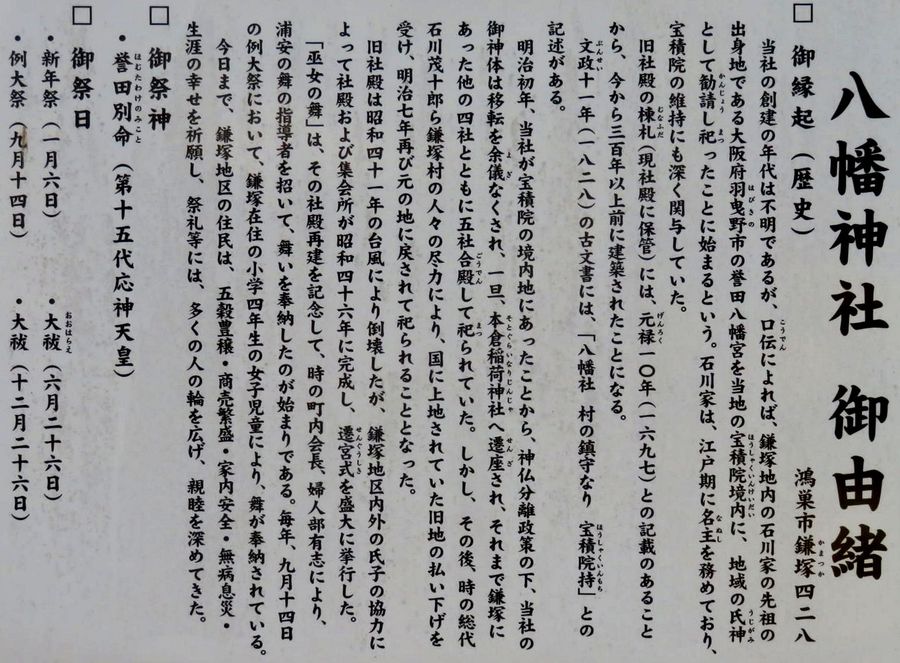 八幡神社　御由緒
鴻巣市鎌塚四二八
□　御縁起（歴史）
当社の創建の年代は不明であるが、口伝によれば、鎌塚地内の石川家の先祖の
出身地である大阪府羽曳野市の誉田八幡宮を当地の宝積院境内に、地域の氏神
として勧請し祀ったことに始まるという。石川家は、江戸期に名主を務めており、
宝積院の維持にも深く関与していた。
旧社殿の棟札（現社殿に保管）には、元禄一〇年（一六九七）との記載のあること
から、今から三百年以上前に建築されたことになる。
文政十一年（一八二八）の古文書には、「八幡社　村の鎮守なり　宝積院持」との
記述がある。
明治初年、当社が宝積院の境内地にあったことから、神仏分離政策の下、当社の
御神体は移転を余儀なくされ、一旦、本倉稲荷神社へ遷座され、それまで鎌塚に
あった他の四社とともに五社合殿して祀られていた。しかし、その後、時の総代
石川茂十郎ら鎌塚村の人々の尽力により、国に上地されていた旧地の払い下げを
受け、明治七年再び元の地に戻されて祀られることとなった。
旧社殿は昭和四十一年の台風により倒壊したが、鎌塚地区内外の氏子の協力に
よって社殿および集会所が昭和四十六年に完成し、遷宮式を盛大に挙行した。
「巫女の舞」は、その社殿再建を記念して、時の町内会長、婦人部有志により、
浦安の舞の指導者を招いて、舞いを奉納したのが始まりである。毎年、九月十四日
の例大祭において、鎌塚在住の小学四年生の女子児童により、舞が奉納されている。
今日まで、鎌塚地区の住民は、五穀豊穣・商売繁盛・家内安全・無病息災・
生涯の幸せを祈願し、祭礼等には、多くの人の輪を広げ、親睦を深めてきた。
□　御祭神
・誉田別命（第十五代応神天皇）
□　御祭日
・新年祭（一月六日）　・大祓（六月二十六日）
・例大祭（九月十四日）　・大祓（十二月二十六日）